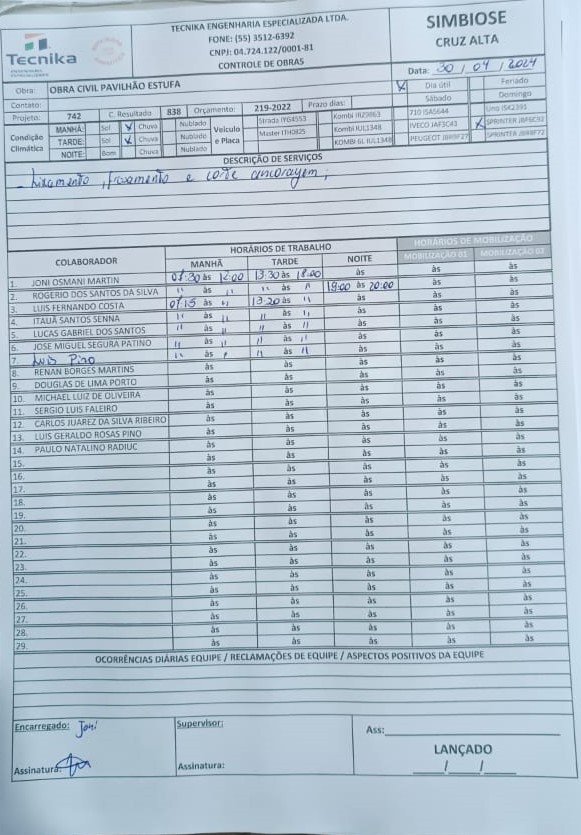 Tecnika
TECNIKA ENGENHARIA ESPECIALIZADA LTDA.
FONE: (55) 3512-6392
CNPJ: 04.724.122/0001-81
CONTROLE DE OBRAS
SIMBIOSE
CRUZ ALTA
Data: 30 / 04 / 2024
Obra: OBRA CIVIL PAVILHÃO ESTUFA
X Dia útil Feriado
Contato: Sábado Domingo
Projeto: 742 C. Resultado 838 Orçamento: 219-2022 Prazo dias:
Condição Climática
MANHÃ: Sol X Chuva Nublado
TARDE: Sol X Chuva Nublado
NOITE: Bom Chuva Nublado
Veículo e Placa
Strada IYG4553 Kombi IRZ9863 710 ISA5644 Uno ISK2391
Master ITH0825 Kombi IUL1348 IVECO JAF3C43 X SPRINTER JBF9C92
KOMBI 6L IUL1348 PEUGEOT JBR9F27 SPRINTER JBB8F72
DESCRIÇÃO DE SERVIÇOS
e corte ancoragem;
COLABORADOR HORÁRIOS DE TRABALHO HORÁRIOS DE MOBILIZAÇÃO
MANHÃ TARDE NOITE MOBILIZAÇÃO 01 MOBILIZAÇÃO 02
1. JONI OSMANI MARTIN 07:30 às 12:00 13:30 às 18:00 às às às
2. ROGERIO DOS SANTOS DA SILVA " às " " às " 19:00 às 20:00 às às
3. LUIS FERNANDO COSTA 07:15 às " 13:20 às " às às às
4. ITAUÃ SANTOS SENNA " às " " às " às às às
5. LUCAS GABRIEL DOS SANTOS " às " " às " às às às
6. JOSE MIGUEL SEGURA PATINO " às " " às " às às às
7. Luis Pino " às " " às " às às às
8. RENAN BORGES MARTINS às às às às às
9. DOUGLAS DE LIMA PORTO às às às às às
10. MICHAEL LUIZ DE OLIVEIRA às às às às às
11. SERGIO LUIS FALEIRO às às às às às
12. CARLOS JUAREZ DA SILVA RIBEIRO às às às às às
13. LUIS GERALDO ROSAS PINO às às às às às
14. PAULO NATALINO RADIUC às às às às às
15. às às às às às
16. às às às às às
17. às às às às às
18. às às às às às
19. às às às às às
20. às às às às às
21. às às às às às
22. às às às às às
23. às às às às às
24. às às às às às
25. às às às às às
26. às às às às às
27. às às às às às
28. às às às às às
29. às às às às às
OCORRÊNCIAS DIÁRIAS EQUIPE / RECLAMAÇÕES DE EQUIPE / ASPECTOS POSITIVOS DA EQUIPE
Encarregado: Joni Supervisor: Ass:
LANÇADO
Assinatura: Assinatura: / /